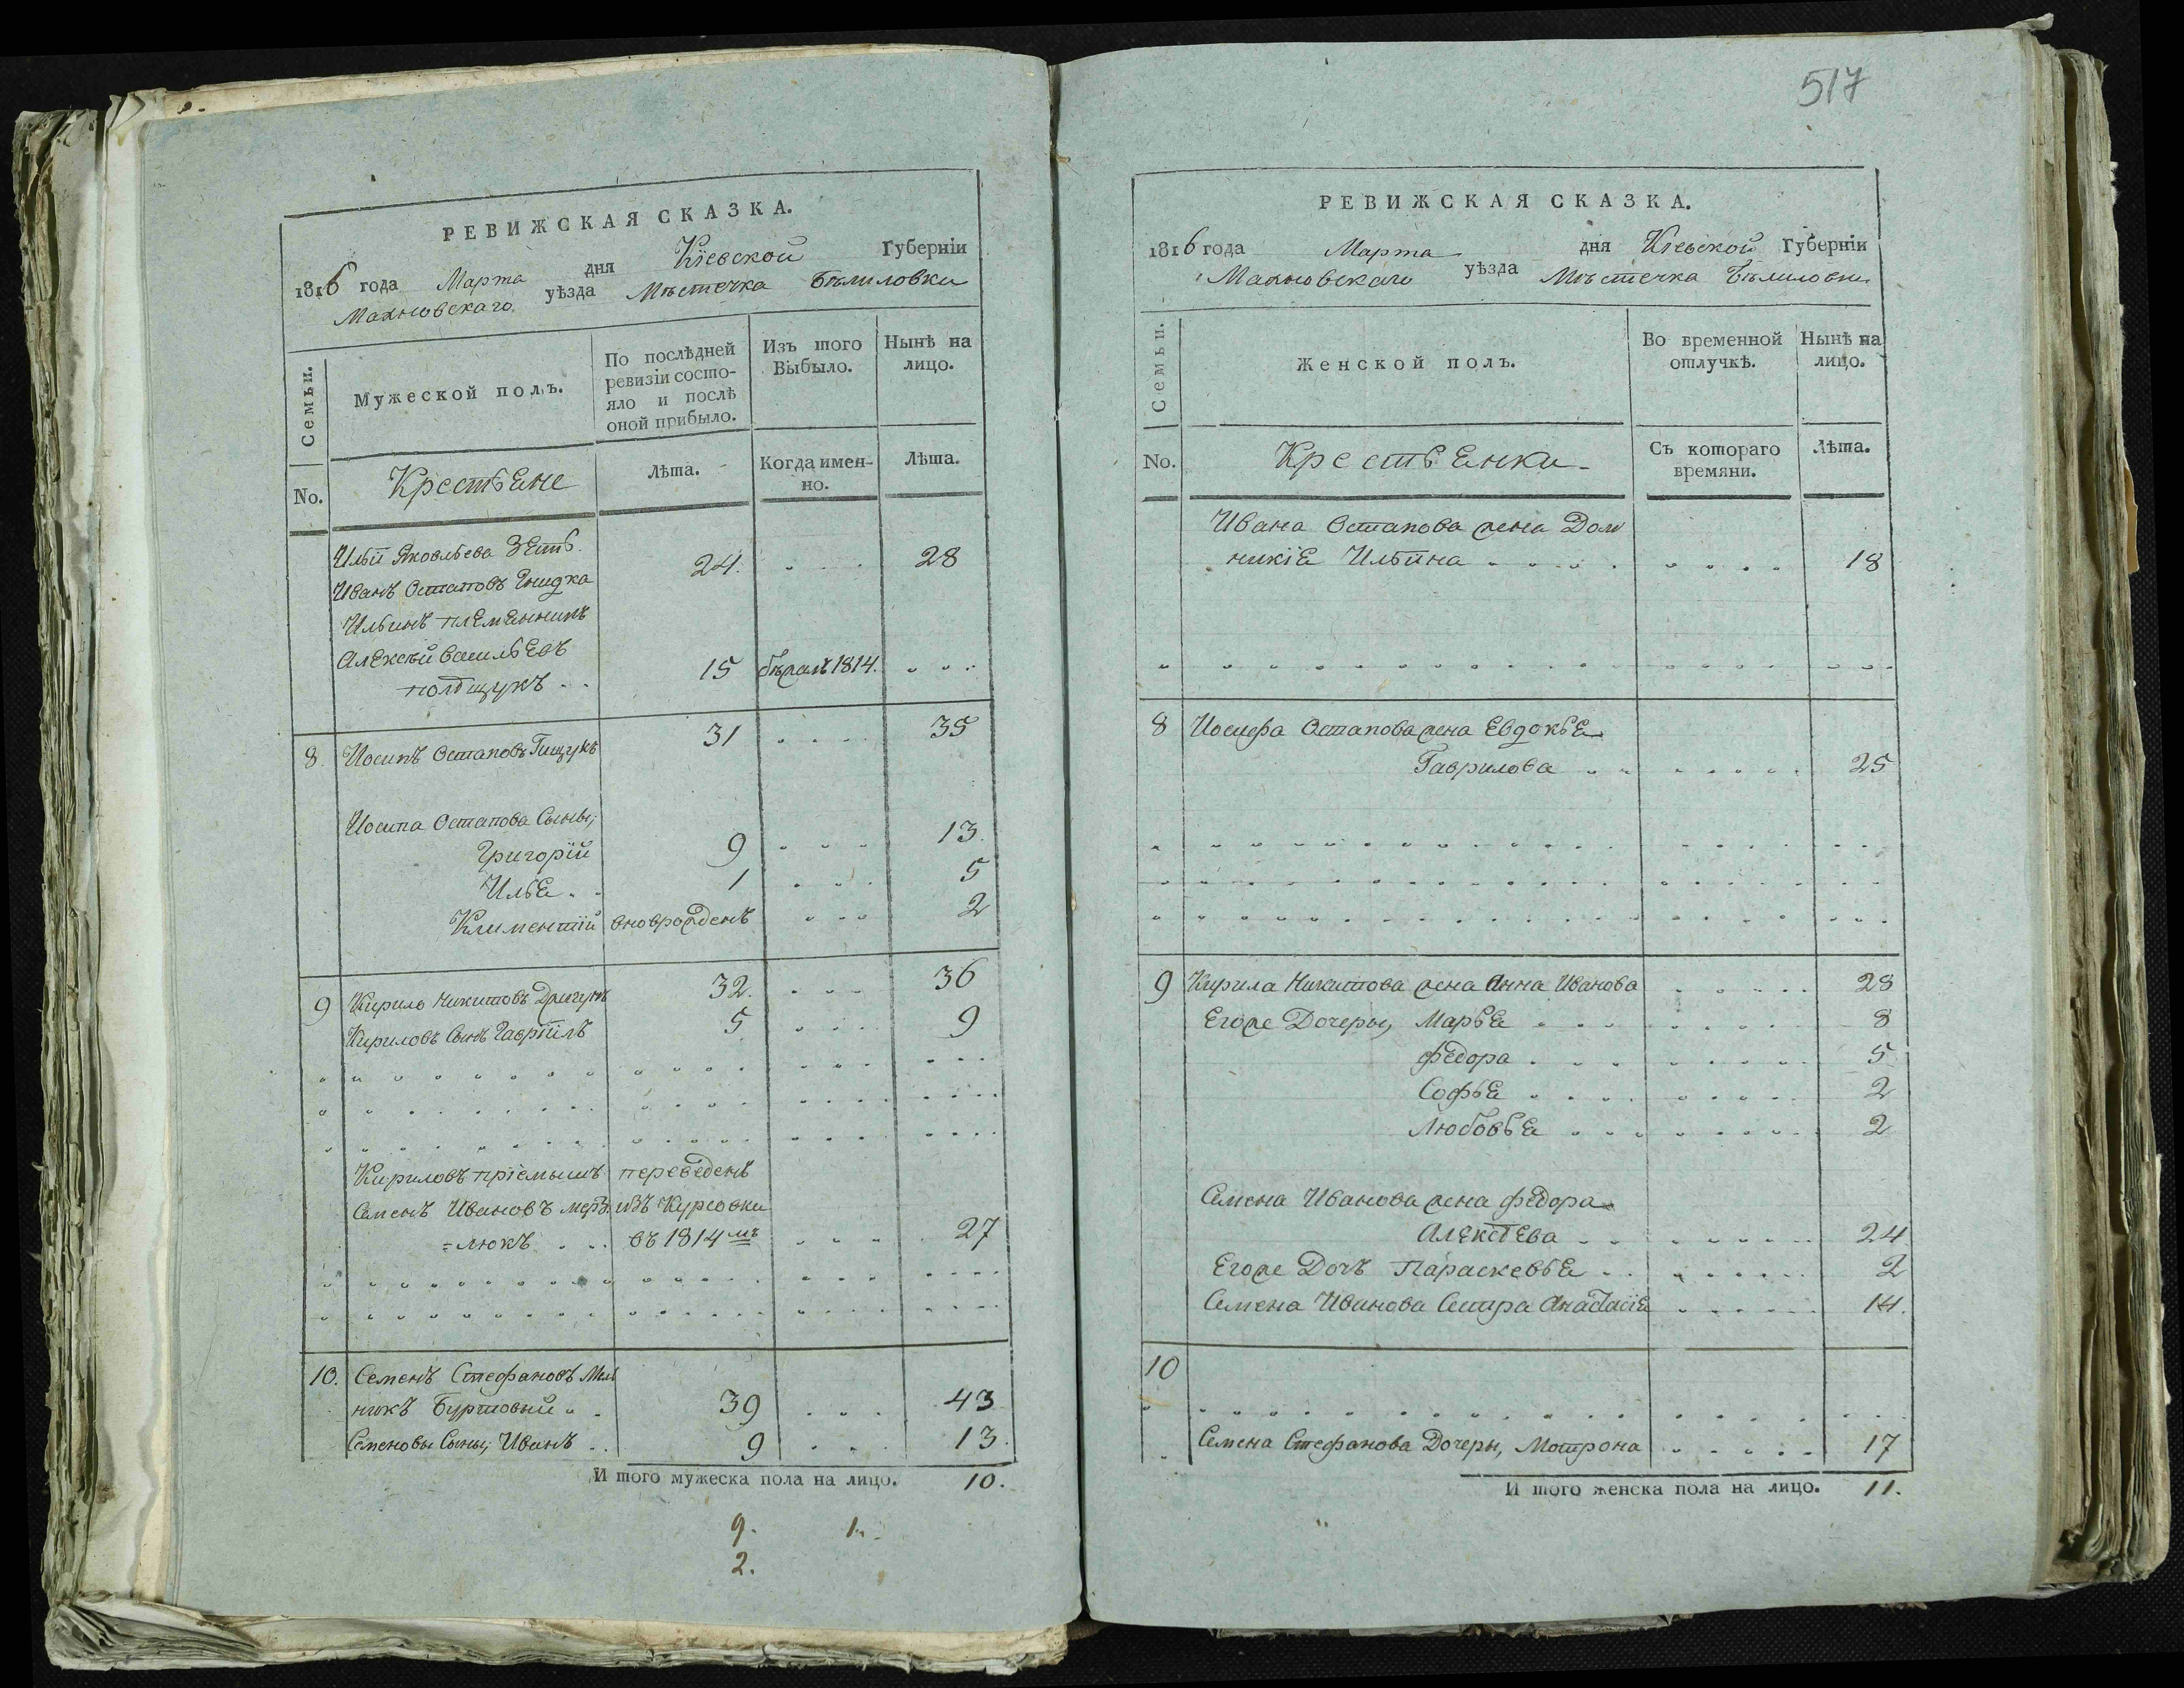 РЕВИЖСКАЯ СКАЗКА.
1816 года Марта дня Кіевской Губерніи
Махновскаго уѣзда Мѣстечка Бѣлиловки
Семьи.
Мужеской полъ.
По послѣдней ревизіи состояло и послѣ оной прибыло.
Изъ того Выбыло.
Нынѣ на лицо.
No.
Крестьяне
Лѣта.
Когда именно.
Лѣта.
Ильи Яковльева Зять
Иванъ Остаповъ 24. 28
Ильинъ племянникъ
Алексѣй Васильевъ
полѣщукъ 15 бѣжалъ 1814.
8. Іосипъ Остаповъ Гищукъ 31 35
Іосипа Остапова Сыны,
Григорій 9 13.
Илья 1 5
Климентій вноврожденъ 2
9 Кирило Никитовъ 32. 36
Кириловъ Сынъ Гавріилъ 5 9
Кириловъ пріемышъ переведенъ
Семенъ Ивановъ изъ Курсовки
=люкъ въ 1814мъ 27
10. Семенъ Стефановъ Мель
никъ Буртовый 39 43
Семеновы Сыны, Иванъ 9 13.
И того мужеска пола на лицо. 10.
9. 1.
2.
517
РЕВИЖСКАЯ СКАЗКА.
1816 года Марта дня Кіевской Губерніи
Махновскаго уѣзда Мѣстечка Бѣлиловки
Семьи.
Женской полъ.
Во временной отлучкѣ.
Нынѣ на лицо.
No.
Крестьянки
Съ котораго времяни.
Лѣта.
Ивана Остапова жена Дом
никія Ильина 18
8 Іосифа Остапова жена Евдокья
Гаврилова 25
9 Кирила Никитова жена Анна Иванова 28
Егоже Дочеры, Марья 8
Федора 5
Софья 2
Любовья 2
Семена Иванова жена Федора
Алексѣева 24
Егоже Дочъ Параскевья 2
Семена Иванова Сестра Анастасія 14.
10
Семена Стефанова Дочеры, Мотрона 17
И того женска пола на лицо. 11.